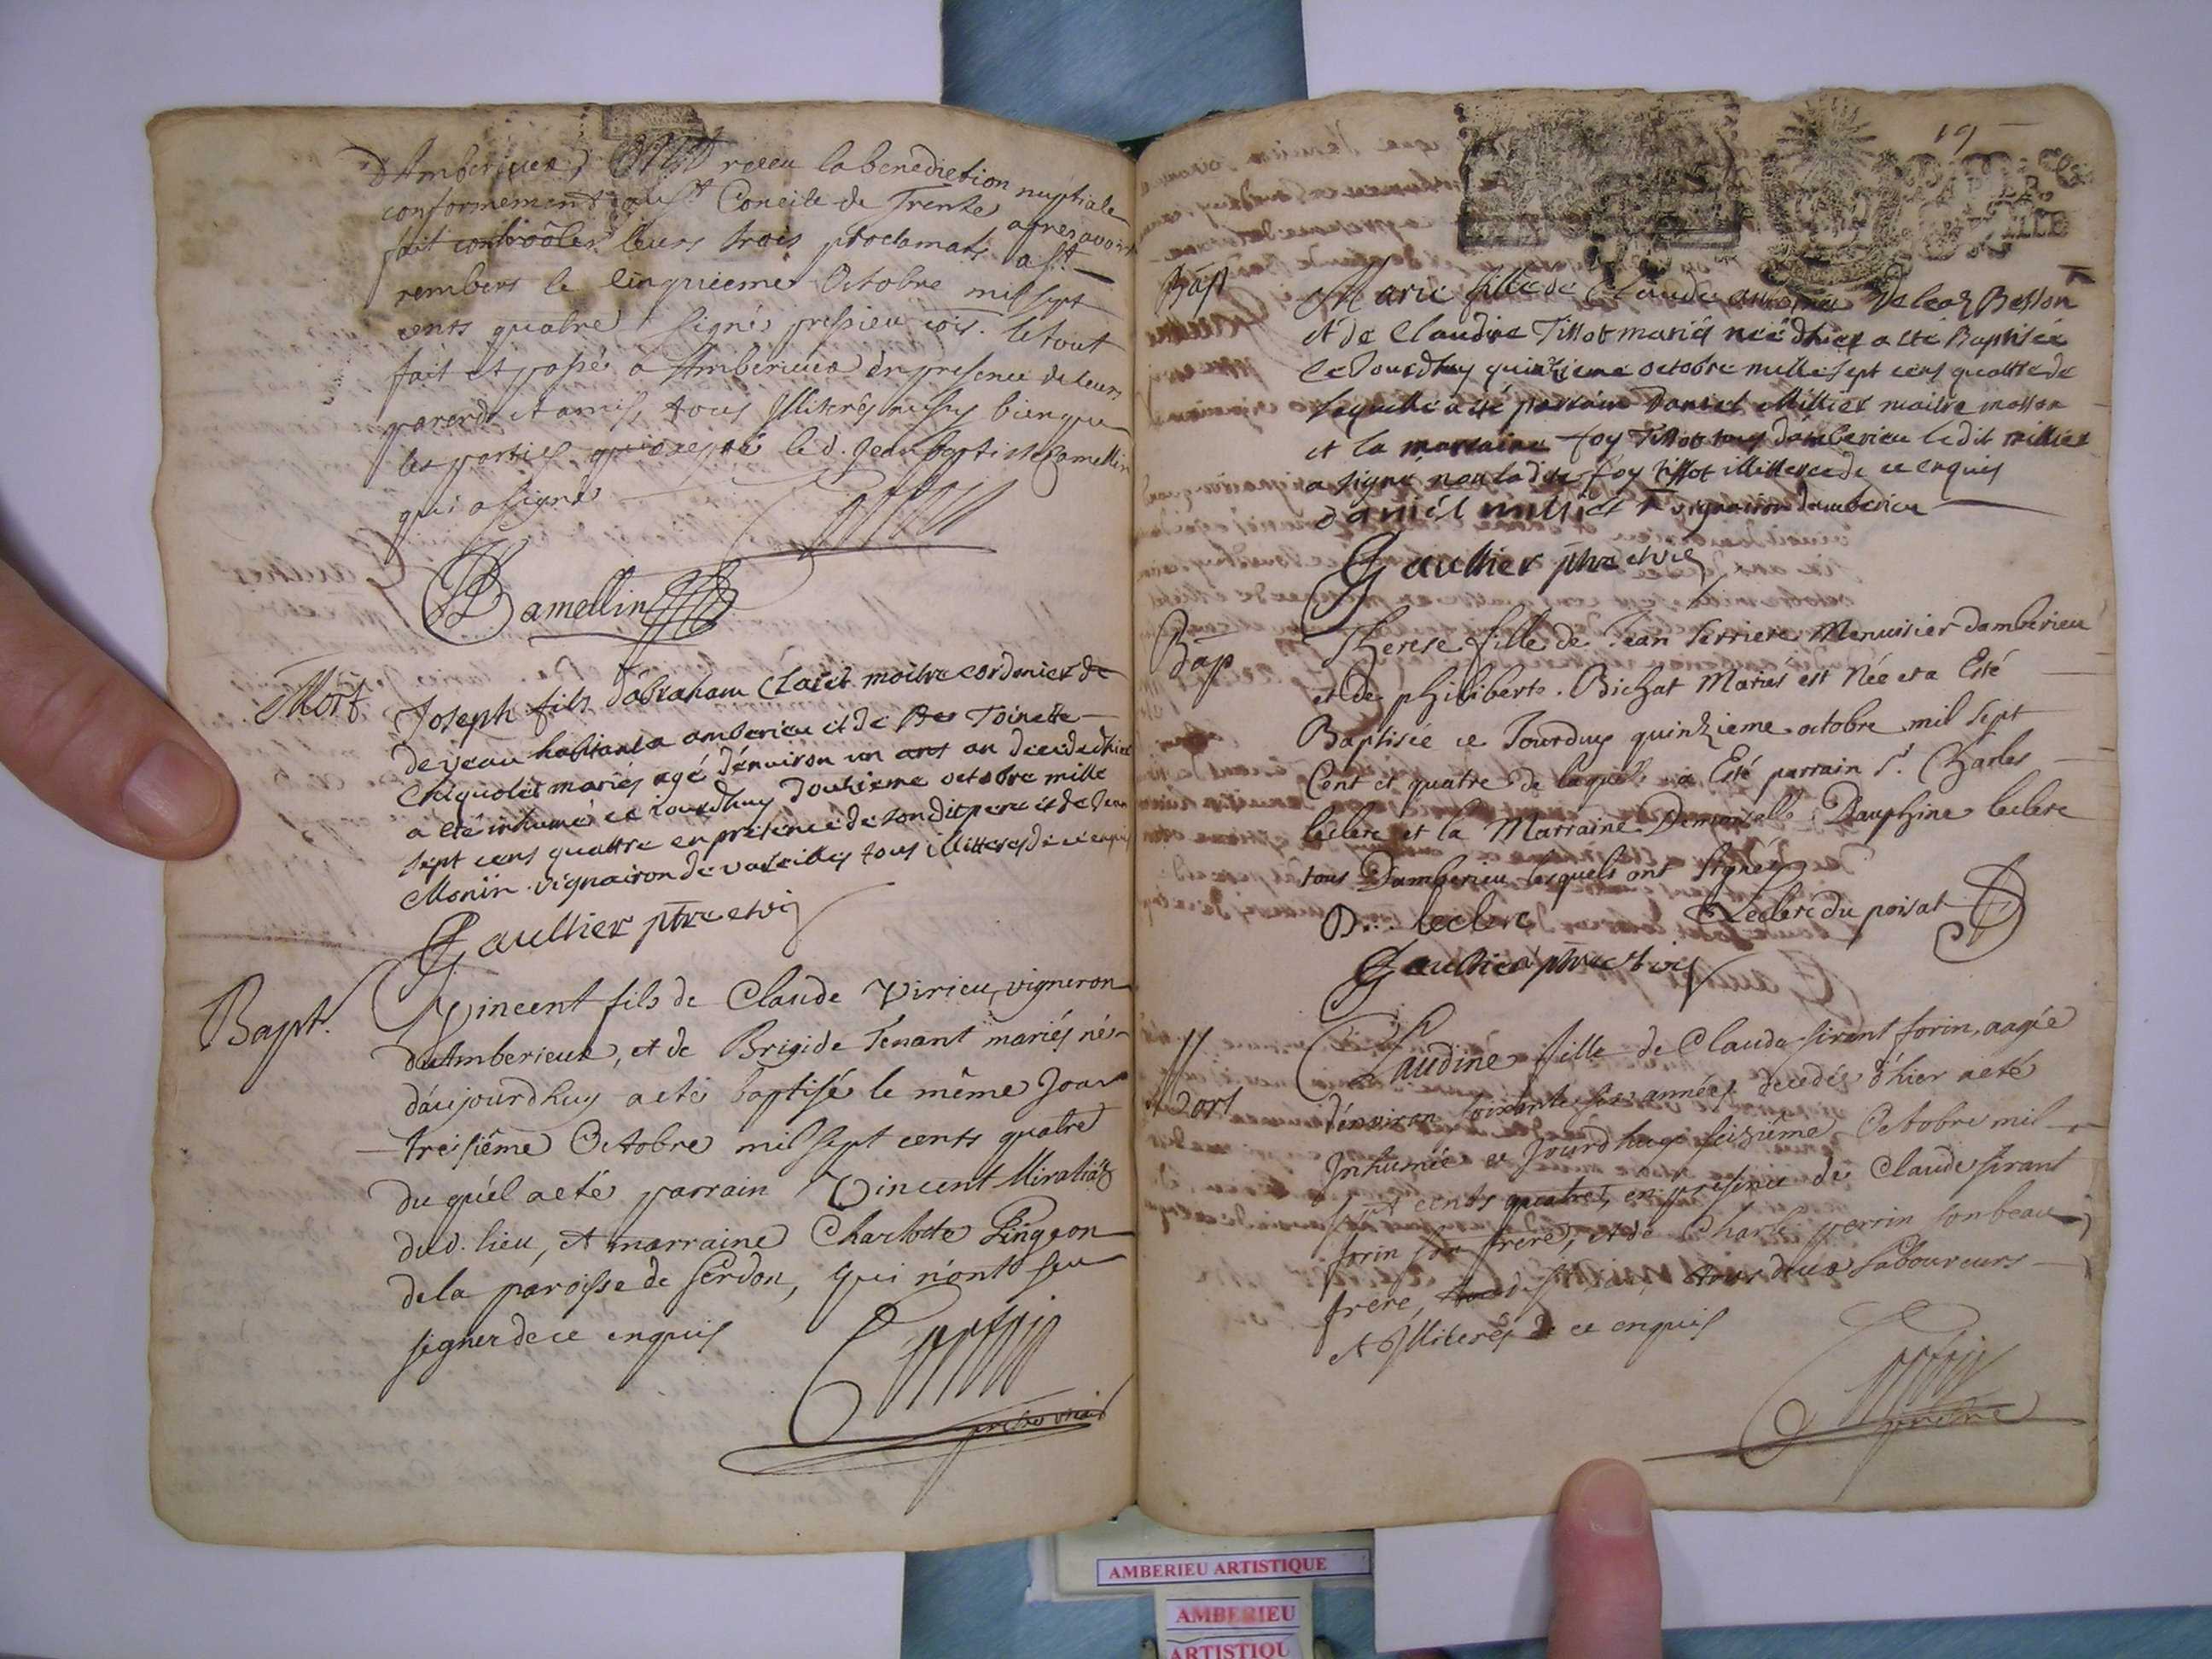 d'Amberieux, Ont receu la benediction nuptiale
conformement au St Concile de Trente apres avoir
fait controoler leurs trois proclamats a St
rembert le cinquieme Octobre mil sept
cents quatre Signé le tout
fait et passé a Amberieux en presence de leurs
parents et amis, tous illiterés aussy bien que
les parties le d. Jean baptiste Camellin
qui a signé
JBamellin
Mort
Joseph fils d'abraham Claret maitre cordonier de
de veau habitant a amberieu et de Toinette
Chiquolet mariés agé d'environ un an decede d'hier
a eté inhumé ce Jourdhuy douzieme octobre mille
sept cens quattre en presence de son dit pere et de Jean
Monin vignairon de vareilles tous illitteres de ce enquis
Gaultier ptre et vic
Bapt.
Vincent fils de Claude Virieu, vigneron
d'Amberieux, et de Brigide Tenant mariés né
d'aujourdhuy a eté baptisé le même Jour
treisiême Octobre mil sept cents quatre
du quel a eté parrain Vincent
dud. lieu, et marraine Charlotte Pingeon
de la paroisse de Serdon, qui n'ont seu
signer de ce enquis
19
Bap
Marie fille de Claude Besson
et de Claudine Tissot mariés née d'hier a eté Baptisée
ce Jourdhuy quinzieme octobre mille sept cens quattre de
laquelle a eté parrain Daniel Millier maitre masson
et la marraine foy Tissot tous d'amberieu ledit millier
a signé non ladite foy tissot illitteree de ce enquis
daniel millier vignairon damberieu
Gaultier ptre et vic
Bap
Therese fille de Jean Serriere Menuisier damberieu
et de philiberte Bichat Mariés est Née et a Esté
Baptisée ce Jourduy quinzieme octobre mil Sept
Cent et quatre de laquelle a Esté parrain Sr. Charles
leclerc et la Marraine Demoiselle Dauphine leclerc
tous Damberieu lesquels ont Signés
D leclerc Leclerc du poisat
Gaultier ptre et vic
Mort
Claudine fille de Claude sirant forin, aagée
d'environ soixante six années decedée d'hier a eté
Inhumée ce Jourdhuy seiziême Octobre mil
sept cents quatre, en presence de Claude sirant
forin son frere, et de Charle perrin son beau
frere, tous deux laboureurs
et illiterés de ce enquis
AMBERIEU ARTISTIQUE
AMBERIEU
ARTISTIQU